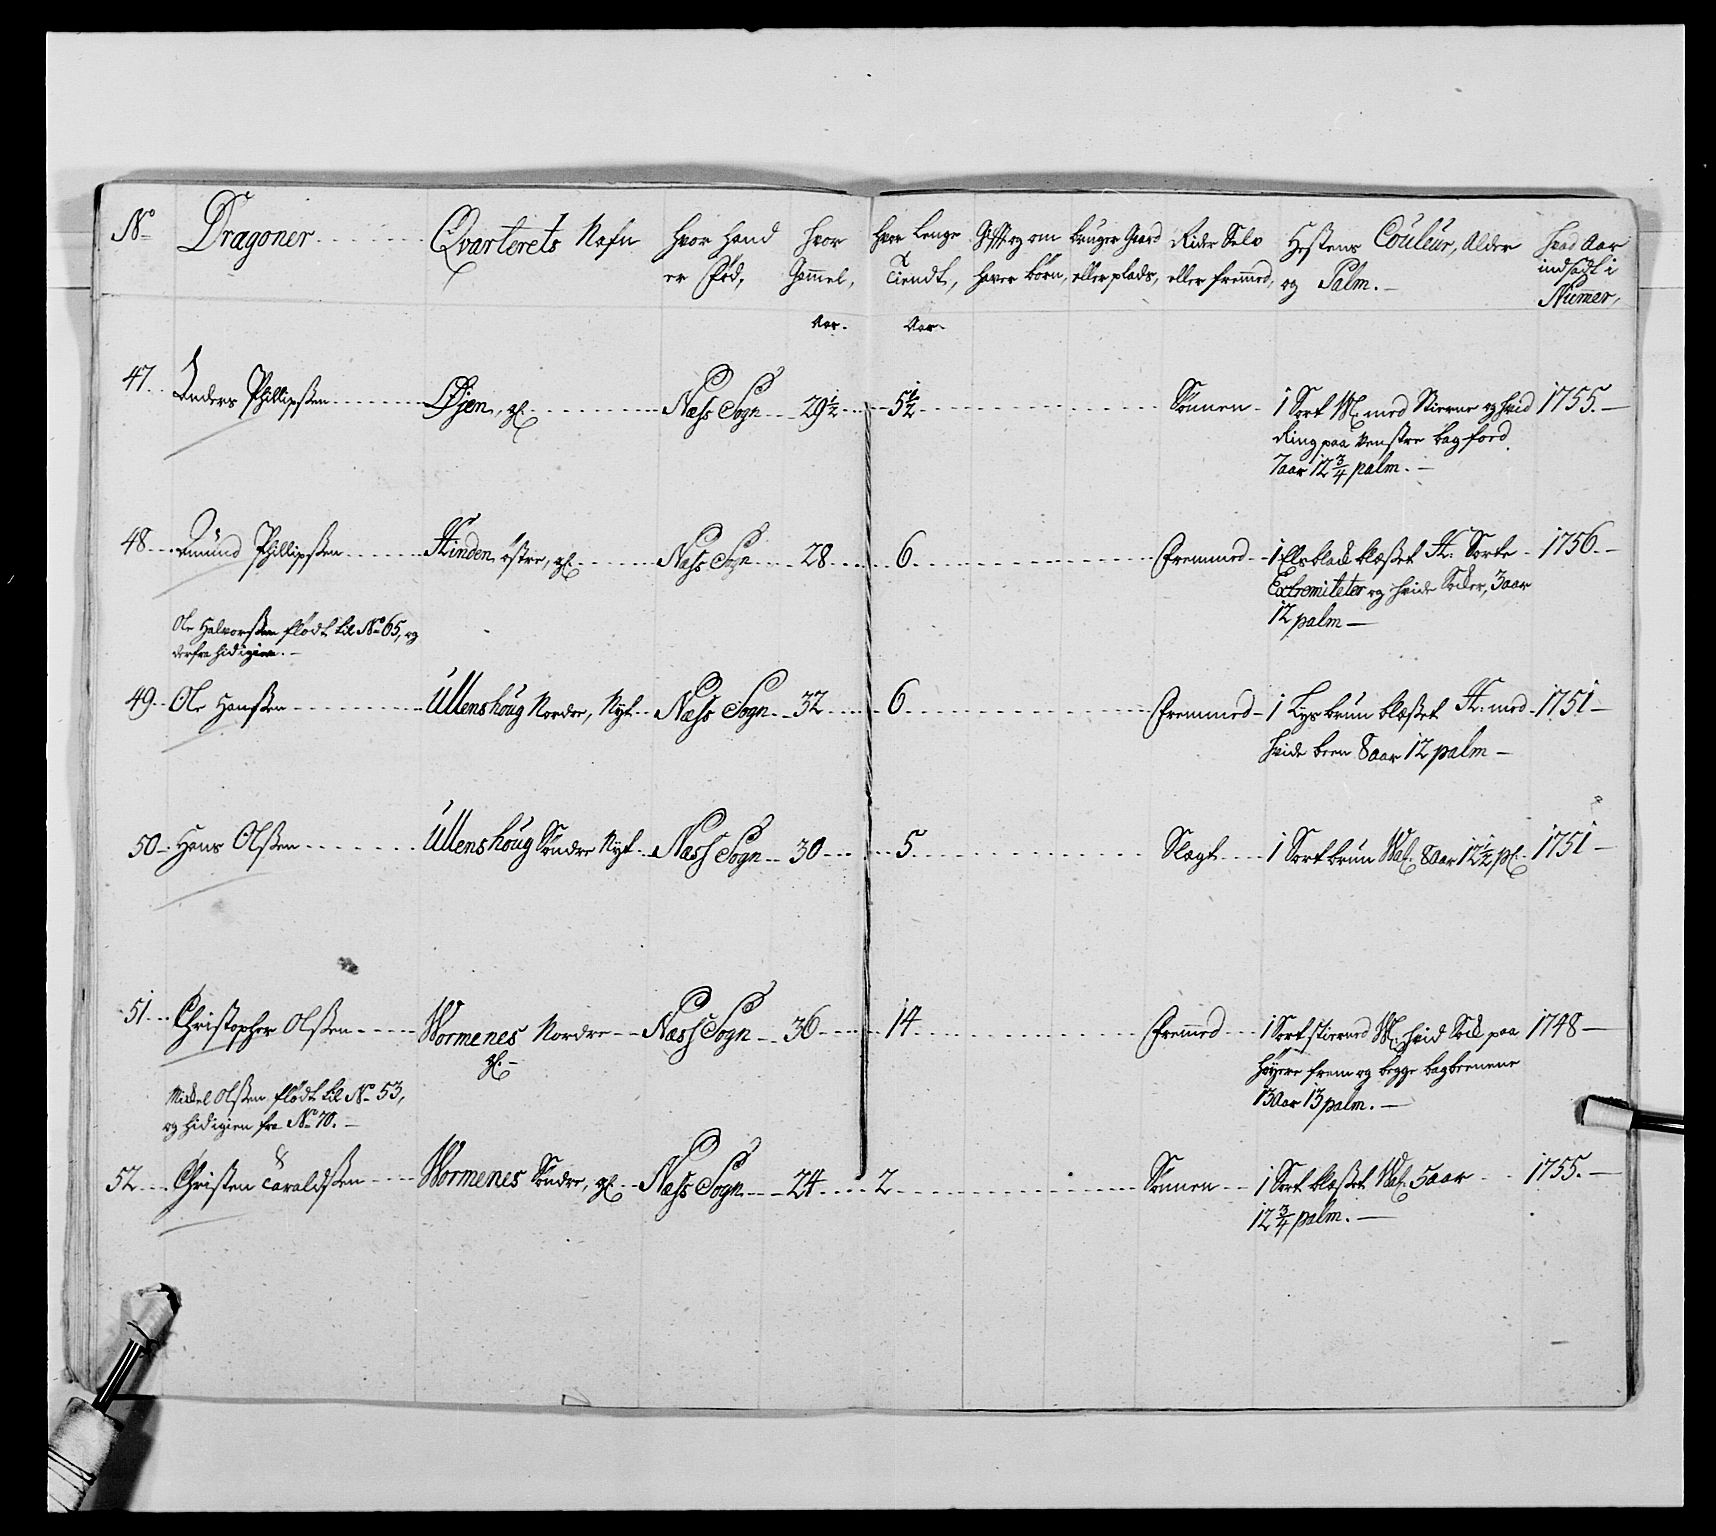 No Dragoner Qvarterets Nafn Hvor Hand er Fød, Hvor Gammel, Hvor Lenge Tiendt, Gifft og om haver børn, bruger Gaard eller plads, Rider Selv eller fremmed, Hestens Couleur, Alder og Palm. Hvad Aar indsadt i Nummer,
Aar. Aar.
47 Anders Phillipsen Øjen, gl. Næss Sogn 29½ 5½ Sønnen 1 Sort W. med Stierne og hvid 1755.
Ring paa venstre bagfod
7 aar 12¾ palm.
48 Amund Phillipsen Hinden østre, gl. Næss Sogn 28 6 Fremmed 1 Elsblack blesset H. Sorte 1756.
Extremiteter og hvide Socker, 3 aar
12 palm
Ole Halvorsen flødt til No 65, og
derfra hid igien.
49 Ole Hansen Ullenshoug Nordre, Nyt Næss Sogn 32 6 Fremmed 1 Lysbrun blesset H. med 1751
hvide been 8 aar 12 palm
50 Hans Olsen Ullenshoug Søndre Nyt Næss Sogn 30 5 Slagt 1 Sortbrun Wal. 8 Aar 12½ pl. 1751
51 Christopher Olsen Wormenes Nordre Næss Sogn 36 14 Fremmed 1 Sortstierned W. hvid Sock paa 1748
gl.
høyere frem og begge bagbeenene
13 Aar 13 palm.
Mickel Olsen flødt til No 53,
og hid igien fra No 70.
52 Christen Taraldsen Wormenes Søndre, gl. Næss Sogn 24 2 Sønnen 1 Sort blesset Wal. 5 aar 1755.
12¾ palm.